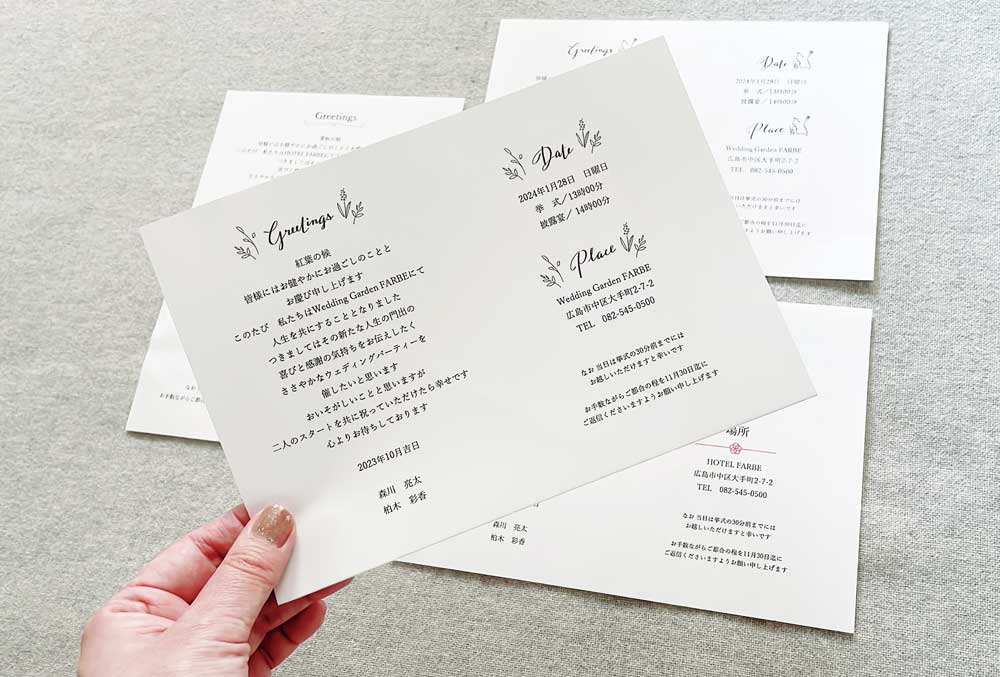 Greetings
紅葉の候
皆様にはお健やかにお過ごしのことと
お慶び申し上げます
このたび 私たちはWedding Garden FARBEにて
人生を共にすることとなりました
つきましてはその新たな人生の門出の
喜びと感謝の気持ちをお伝えしたく
ささやかなウェディングパーティーを
催したいと思います
おいそがしいことと思いますが
二人のスタートを共に祝っていただけたら幸せです
心よりお待ちしております
2023年10月吉日
森川 亮太
柏木 彩香
Date
2024年1月28日 日曜日
挙 式/13時00分
披露宴/14時00分
Place
Wedding Garden FARBE
広島市中区大手町2-7-2
TEL 082-545-0500
なお 当日は挙式の30分前までには
お越しいただけますと幸いです
お手数ながらご都合の程を11月30日迄に
ご返信くださいますようお願い申し上げます
Greetings
なお
お手数ながらご都
Greetings
Date
2024年1月28日 日曜日
挙 式/13時00分
披露宴/14時00分
Place
Wedding Garden FARBE
広島市中区大手町2-7-2
TEL 082-545-0500
の30分前までには
いただけますと幸いです
ご都合の程を11月30日迄に
ますようお願い申し上げます
場所
HOTEL FARBE
広島市中区大手町2-7-2
TEL 082-545-0500
なお 当日は挙式の30分前までには
お越しいただけますと幸いです
お手数ながらご都合の程を11月30日迄に
ご返信くださいますようお願い申し上げます
森川 亮太
柏木 彩香